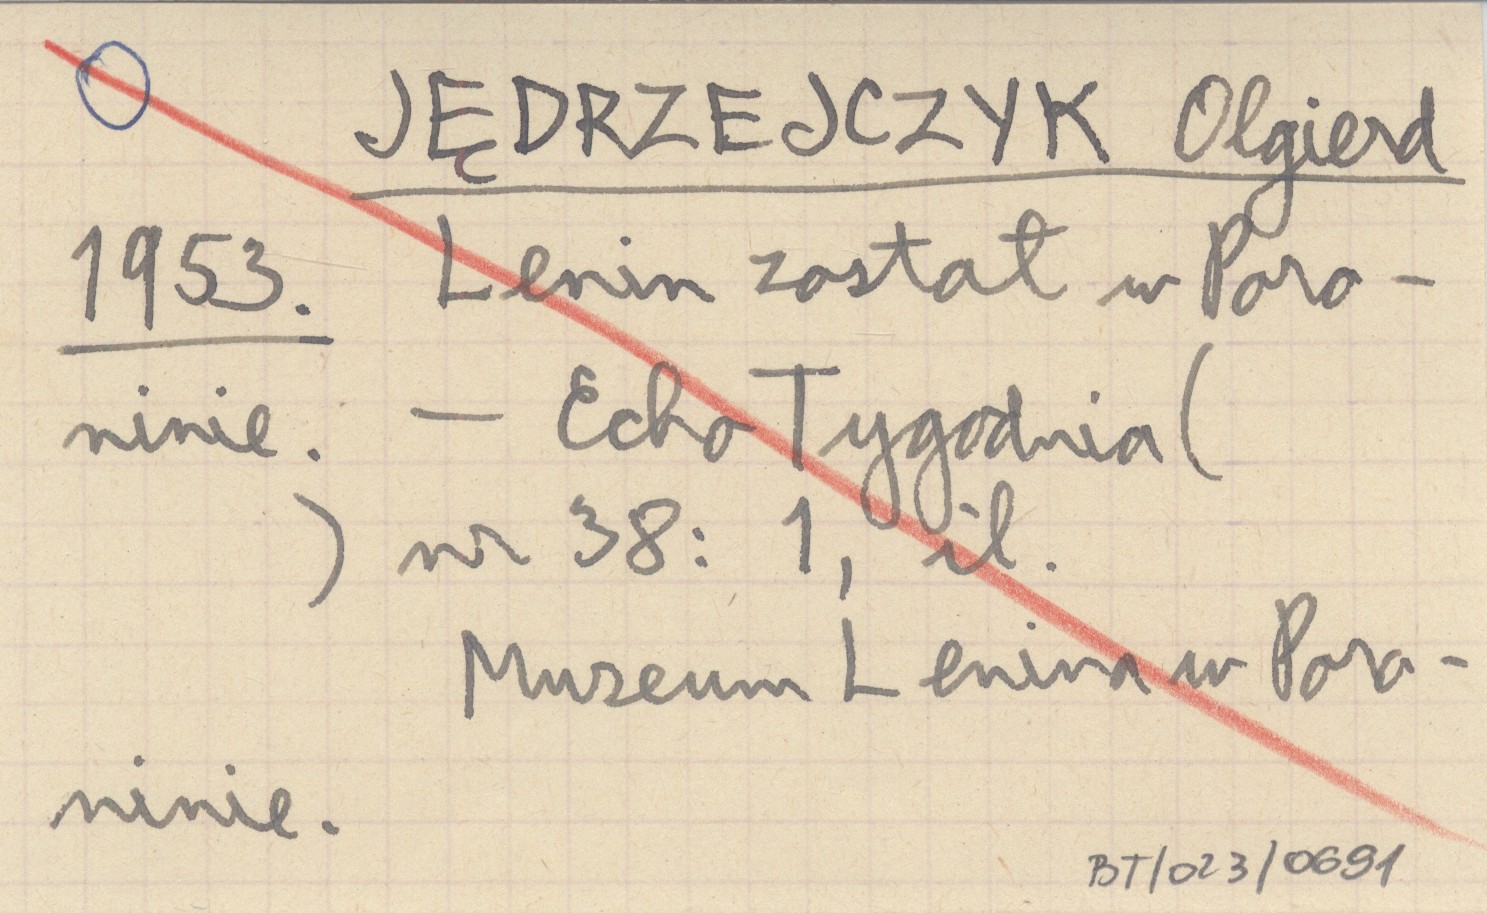 JĘDRZEJCZYK Olgierd
1953. Lenin został w Poro-
ninie. — Echo Tygodnia (
) nr 38: 1, il.
Muzeum Lenina w Poro-
ninie.
BT/023/0691